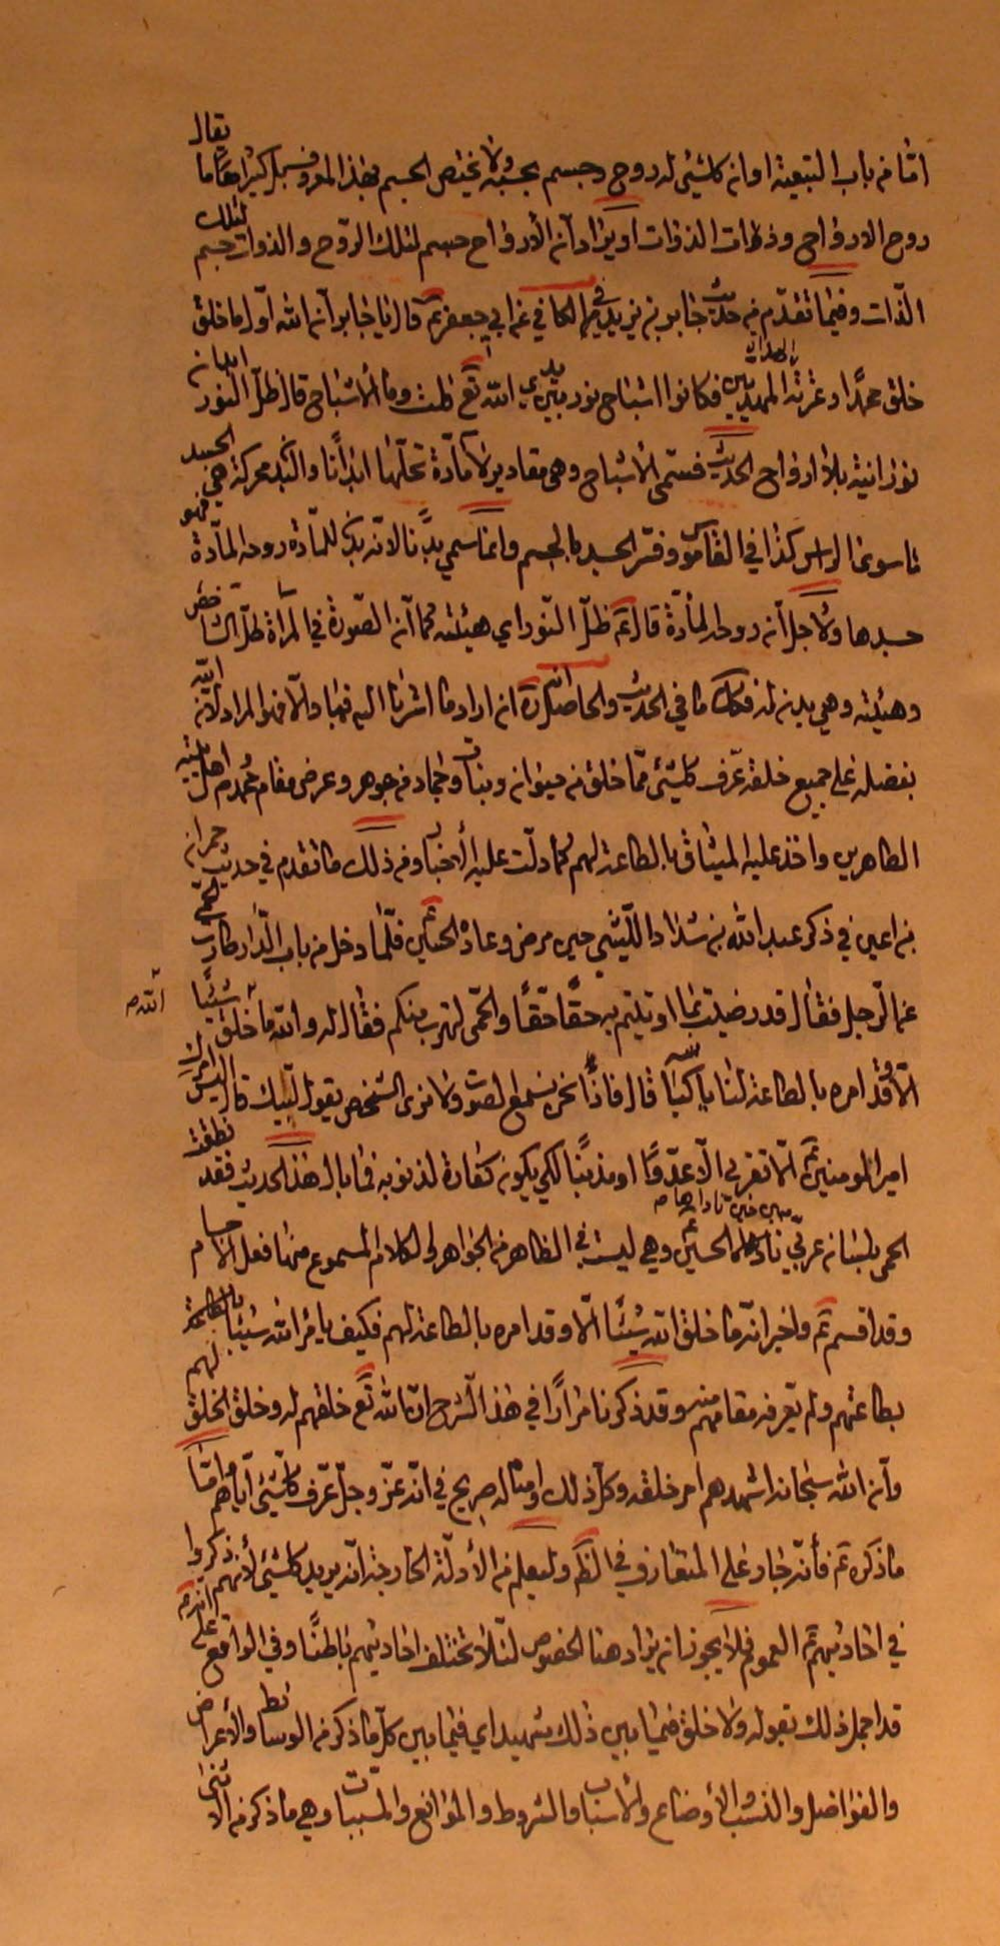 اما من باب التبعية او ان كل شيء له روح وجسم بحسبه ولا يختص الجسم بهذا المعروف بل كثيرا ما يقال
روح الارواح وذوات الذوات او يراد ان الارواح جسم لتلك الروح والذوات جسم لتلك
الذات وفيما تقدم من حديث جابر بن يزيد في الكافي عن ابي جعفر ع قال يا جابر ان الله اول ما خلق
خلق محمدا وعترته الهداة المهديين فكانوا اشباح نور بين يدي الله تع قلت وما الاشباح قال ظل النور ابدان
نورانية بلا ارواح الحديث فسمى الاشباح وهي مقادير لا مادة تحلها ابدانا والبدن محركة هي الجسد
ما سوى الراس كذا في القاموس وفسر الجسد بالجسم وانما سمي بدنا لانه بدن للمادة روحه المادة فهو
جسدها ولاجل انه روحه المادة قال ع ظل النور اي هيئته كما ان الصورة في المرآة ظل الشاخص
وهيئته وهي بدن له فكك ما في الحديث والحاصل انه ع ان اراد ما اشرنا اليه فبها والا فهو المراد لانه اية
بفضله على جميع خلقه عرف كل شيء مما خلق من حيوان ونبات وجماد من جوهر وعرض مقام محمد ص واهل بيته
الطاهرين واخذ عليه الميثاق بالطاعة لهم كما دلت عليه الاخبار ومن ذلك ما تقدم في حديث حمران
بن اعين في ذكر عبد الله بن شداد الليثي حين مرض وعاده الحسين ع فلما دخل من باب الدار طارت الحمى
عن الرجل فقال قد رضيت بما اوتيتم به حقا حقا والحمى لتهرب منكم فقال له والله ما خلق الله شيئا
الا وقد امره بالطاعة لنا يا كباسة قال فاذا نحن نسمع الصوت ولا نرى الشخص يقول لبيك قال اليس امرك
امير المؤمنين ع الا تقربي الا عدوا او مذنبا لكي يكون كفارة لذنوبه فما بال هذا الحديث فقد نطقت
الحمى بلسان عربي حين ناداها الحسين ع وهي ليست في الظاهر من الجواهر والكلام المسموع منها فعل الاجسام
وقد اقسم ع واخبر انه ما خلق الله شيئا الا وقد امره بالطاعة لهم فكيف يامر الله شيئا بالطاعة لهم
بطاعتهم ولم يعرفه مقامهم منه وقد ذكرنا مرارا في هذا الشرح ان الله تع خلقهم له وخلق الخلق لهم
وان الله سبحانه اشهدهم امر خلقه وكل ذلك وامثاله صريح في انه عز وجل عرف كل شيء اياهم واما
ما ذكره ع فأنه جار على المتعارف في الظ وليعلم من الأدلة الخارجة انه يريد كل شيء لأنهم ذكروا
في احاديثهم ع العموم فلا يجوز ان يراد هنا الخصوص لئلا تختلف احاديثهم باطنا وفي الواقع على انه ع
قد اجمل ذلك بقوله ولا خلق فيما بين ذلك شهيد اي فيما بين كل ما ذكر من الوسائط والأعراض
والفواضل والنسب والأوضاع والأسباب والشروط والموانع والمسببات وهي ما ذكر من الا